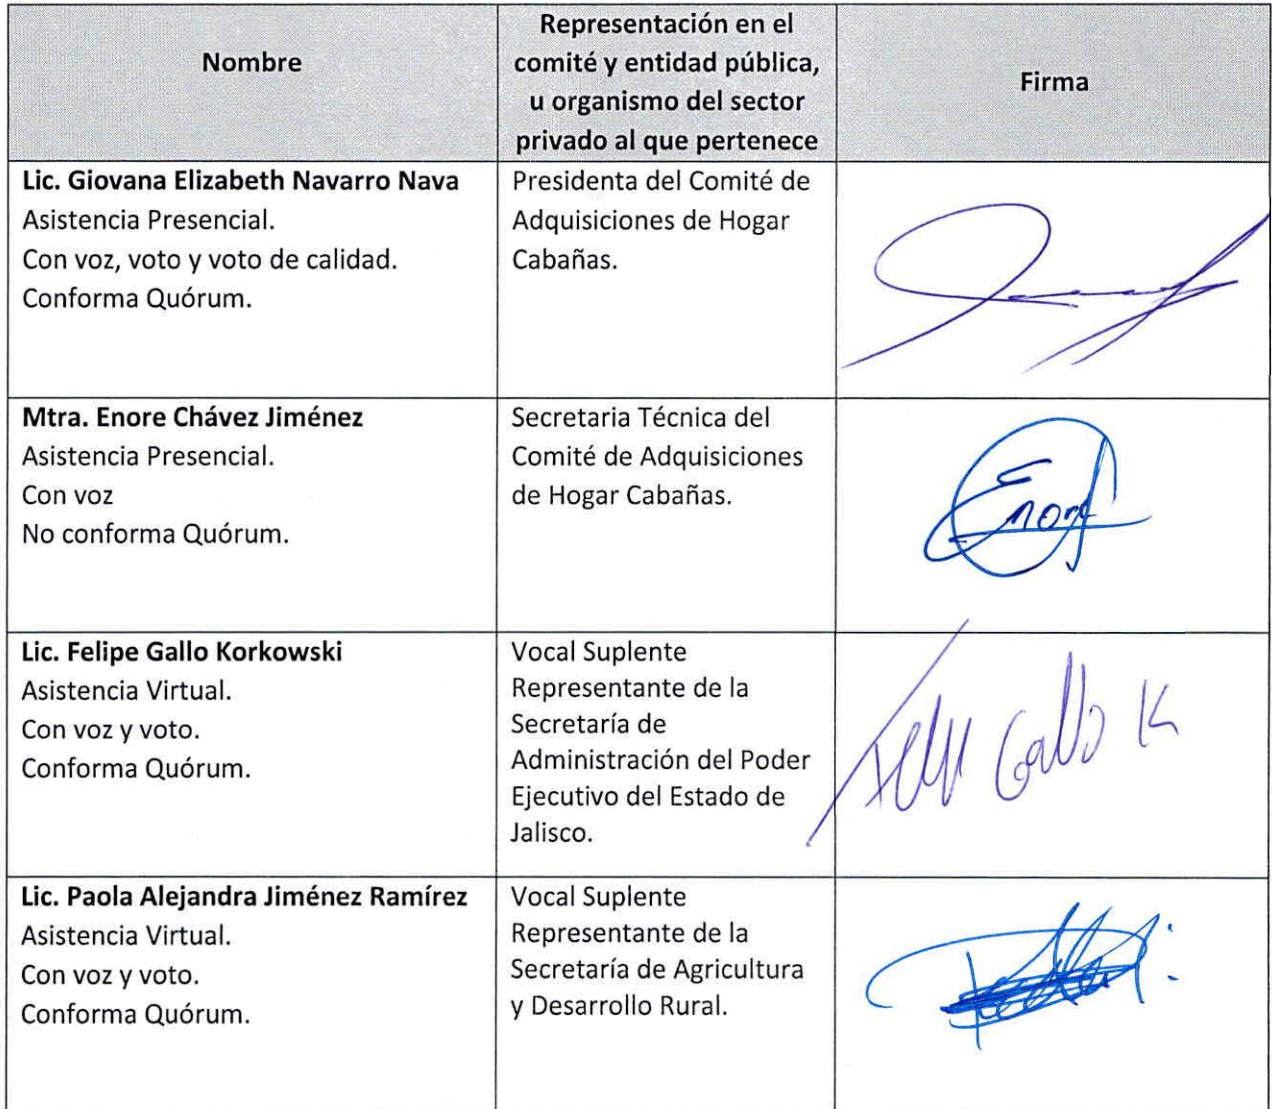 Nombre
Representación en el
comité y entidad pública,
u organismo del sector
privado al que pertenece
Firma
Lic. Giovana Elizabeth Navarro Nava
Asistencia Presencial.
Con voz, voto y voto de calidad.
Conforma Quórum.
Presidenta del Comité de
Adquisiciones de Hogar
Cabañas.
Mtra. Enore Chávez Jiménez
Asistencia Presencial.
Con voz
No conforma Quórum.
Secretaria Técnica del
Comité de Adquisiciones
de Hogar Cabañas.
Enore
Lic. Felipe Gallo Korkowski
Asistencia Virtual.
Con voz y voto.
Conforma Quórum.
Vocal Suplente
Representante de la
Secretaría de
Administración del Poder
Ejecutivo del Estado de
Jalisco.
Gallo K
Lic. Paola Alejandra Jiménez Ramírez
Asistencia Virtual.
Con voz y voto.
Conforma Quórum.
Vocal Suplente
Representante de la
Secretaría de Agricultura
y Desarrollo Rural.